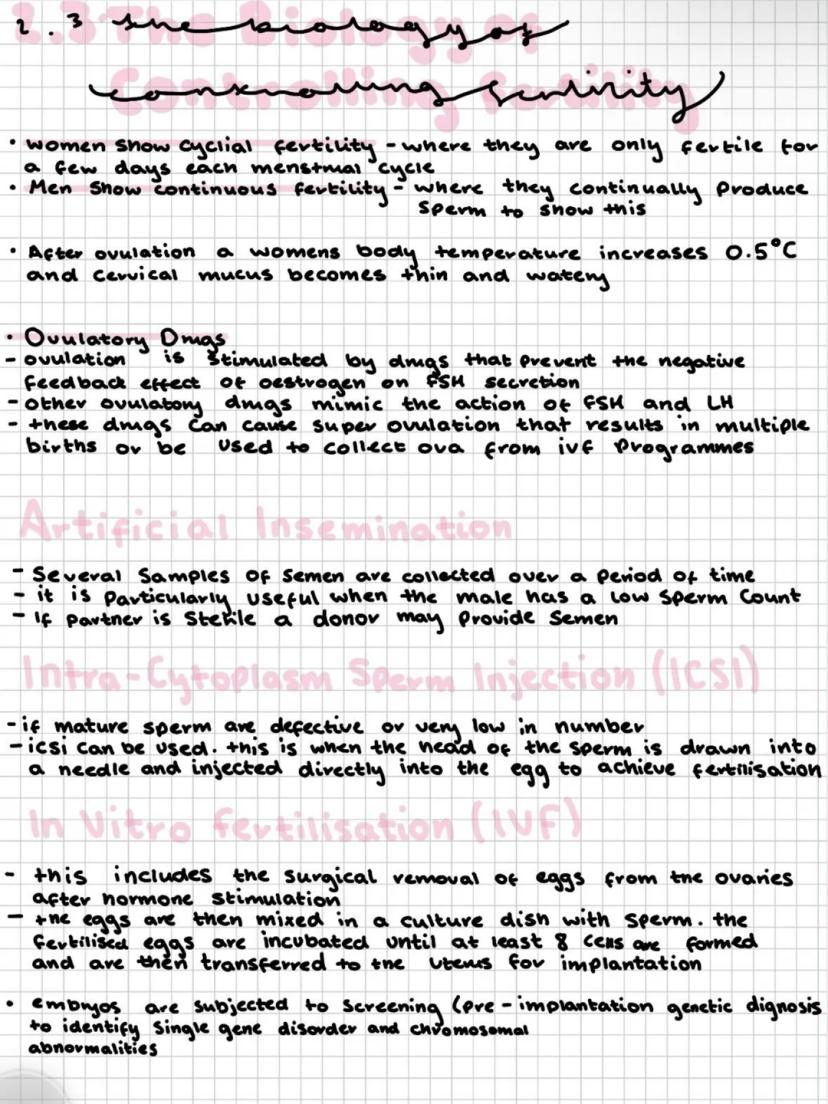 2.3 The Biology of
Controlling fertility
• Women show cyclial fertility - where they are only fertile for
a few days each menstrual cycle
• Men show continuous fertility - where they continually produce
sperm to show this
• After ovulation a womens body temperature increases 0.5°C
and cervical mucus becomes thin and watery
• Ovulatory Drugs
- ovulation is stimulated by drugs that prevent the negative
feedback effect of oestrogen on FSH secretion
- other ovulatory drugs mimic the action of FSH and LH
- these drugs can cause super ovulation that results in multiple
births or be used to collect ova from ivf programmes
Artificial Insemination
- Several samples of semen are collected over a period of time
- it is particularly useful when the male has a low sperm count
- If partner is sterile a donor may provide semen
Intra-Cytoplasm Sperm Injection (ICSI)
- if mature sperm are defective or very low in number
- icsi can be used. this is when the head of the sperm is drawn into
a needle and injected directly into the egg to achieve fertilisation
In Vitro fertilisation (IVF)
- this includes the surgical removal of eggs from the ovaries
after hormone stimulation
- the eggs are then mixed in a culture dish with sperm. the
fertilised eggs are incubated until at least 8 cells are formed
and are then transferred to the uterus for implantation
• embryos are subjected to screening (pre-implantation genetic dignosis
to identify single gene disorder and chromosomal
abnormalities